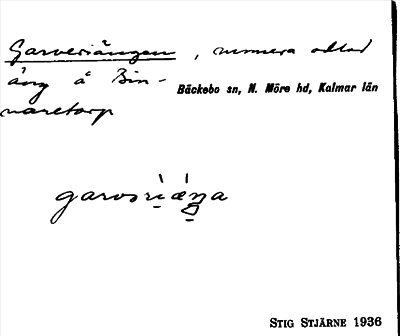 Garveriängen, numera odlad
äng å Bin-
naretorp
Bäckebo sn, N. Möre hd, Kalmar län
garvəriæŋa
STIG STJÄRNE 1936